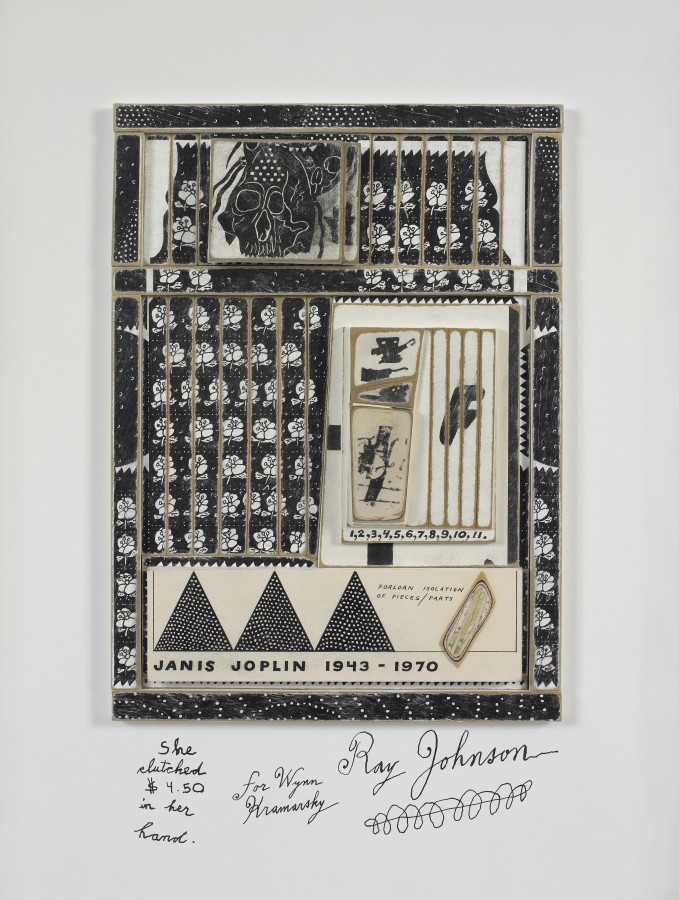 1,2,3,4,5,6,7,8,9,10,11.
FORLORN ISOLATION
OF PIECES/PARTS
JANIS JOPLIN 1943 - 1970
She
clutched
$ 4.50
in her
hand.
for Wynn
Kramarsky
Ray Johnson